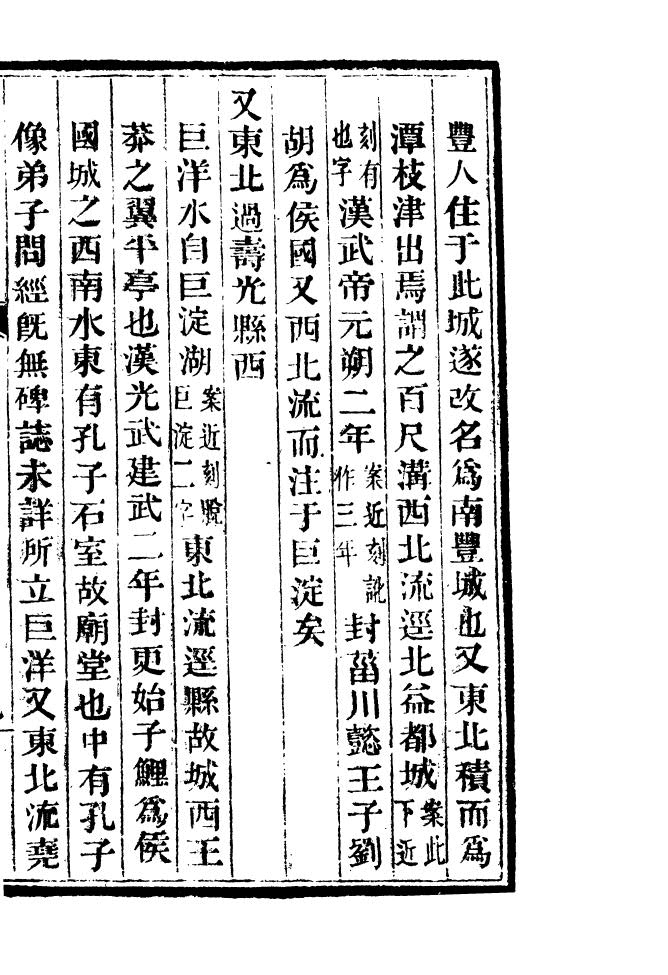 豐人住于此城遂改名爲南豐城也又東北積而爲
潭枝津出焉謂之百尺溝西北流逕北益都城案此下近
刻有也字漢武帝元朔二年案近刻訛作三年封菑川懿王子劉
胡爲侯國又西北流而注于巨淀矣
又東北過壽光縣西
巨洋水自巨淀湖案近刻脫巨淀二字東北流逕縣故城西王
莽之翼平亭也漢光武建武二年封更始子鯉爲侯
國城之西南水東有孔子石室故廟堂也中有孔子
像弟子問經旣無碑誌未詳所立巨洋又東北流堯